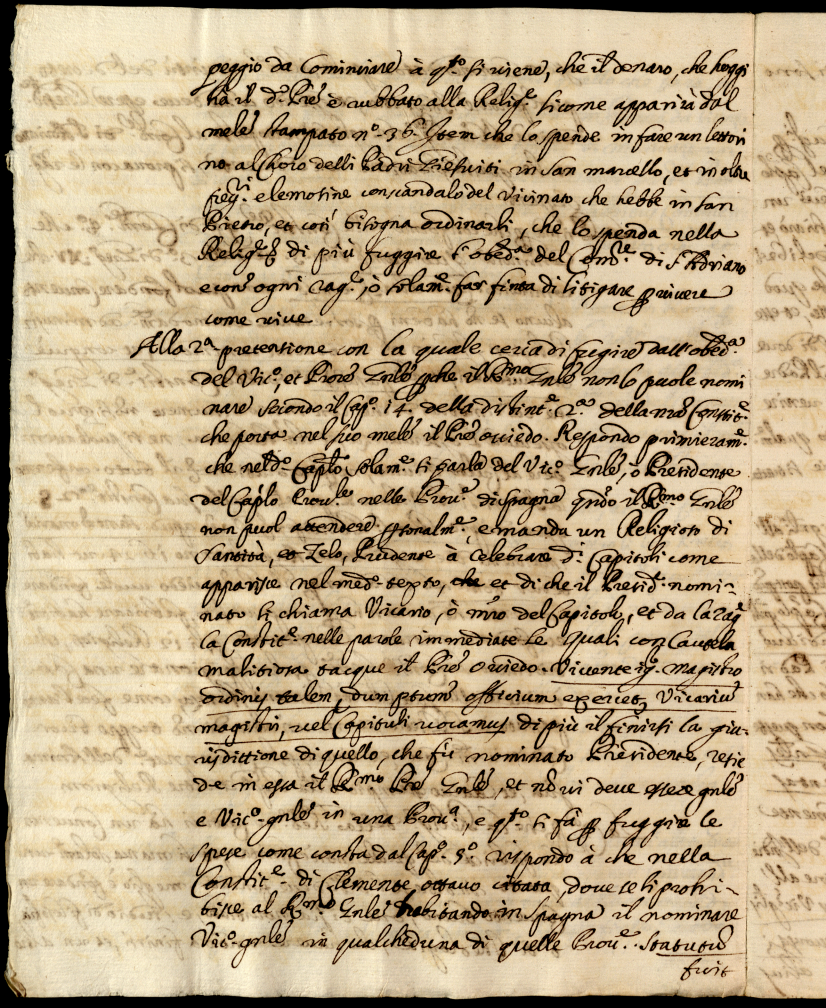 peggio da Cominciare à q.to si viene, che il denaro, che hoggi
hà il d.o Pre è rubbato alla Relig.e sicome apparirà dal
mele stampato n.o 36. Item che lo spende in fare un lettori
no al Choro delli Padri Giesuiti in San marcello, et in oltre
elemosine con scandalo del Vicinato che hebbe in San
Pietro, et così bisogna ordinarli, che lo spenda nella
Relig.e di più fuggire l'obed.a del di S. Adriano
e con ogni rag.e, ò solam.e far finta di litigare p vivere
come vive
Alla 2.a pretentione con la quale cerca di fugire dall'obed.a
del Vic.o, et Prore Gnle pche il R.mo Gnle non lo puole nomi
nare secondo il Cap.o 14. della distint.e 2.a della nra Constit.e
che porta nel suo mele il Pre oviedo. Respondo primieram.e
che nel d.o Caplo solam.e si parla del Vic.o Gnle, ò Presidente
del Caplo Prou.le nelle Prou.e di Spagna qndo il R.mo Gnle
non puol attendere psonalm.e, e manda un Religioso di
Santità, et Zelo, Prudente à celebrare d.i Capitoli come
apparisce nel med.o texto, che et di che il Presid.e nomi-
nato si chiama Vicario, ò mro del Capitolo, et da la rag.e
la Constit.e nelle parole immediate le quali con Cautela
malitiosa tacque il Pre oviedo. Vivente ig.r magistro
ordinis talem, dum ptum officium exercet, Vicarium
magistri, vel Capituli vocamus di più il finirsi la giu-
risdittione di quello, che fù nominato Presidente, resie
de in essa il R.mo Pre Gnle, et nò vi deve essere gnle
e Vic.o gnle in una Prou.a, e q.to si fà p fuggire le
spese come consta dal Cap.o 5.o rispondo à che nella
Constit.e di Clemente ottavo citata, dove se li prohi-
bisce al R.mo Gnle habitando in Spagna il nominare
Vic.o gnle in qualcheduna di quelle Prou.e. Statutum
fuit